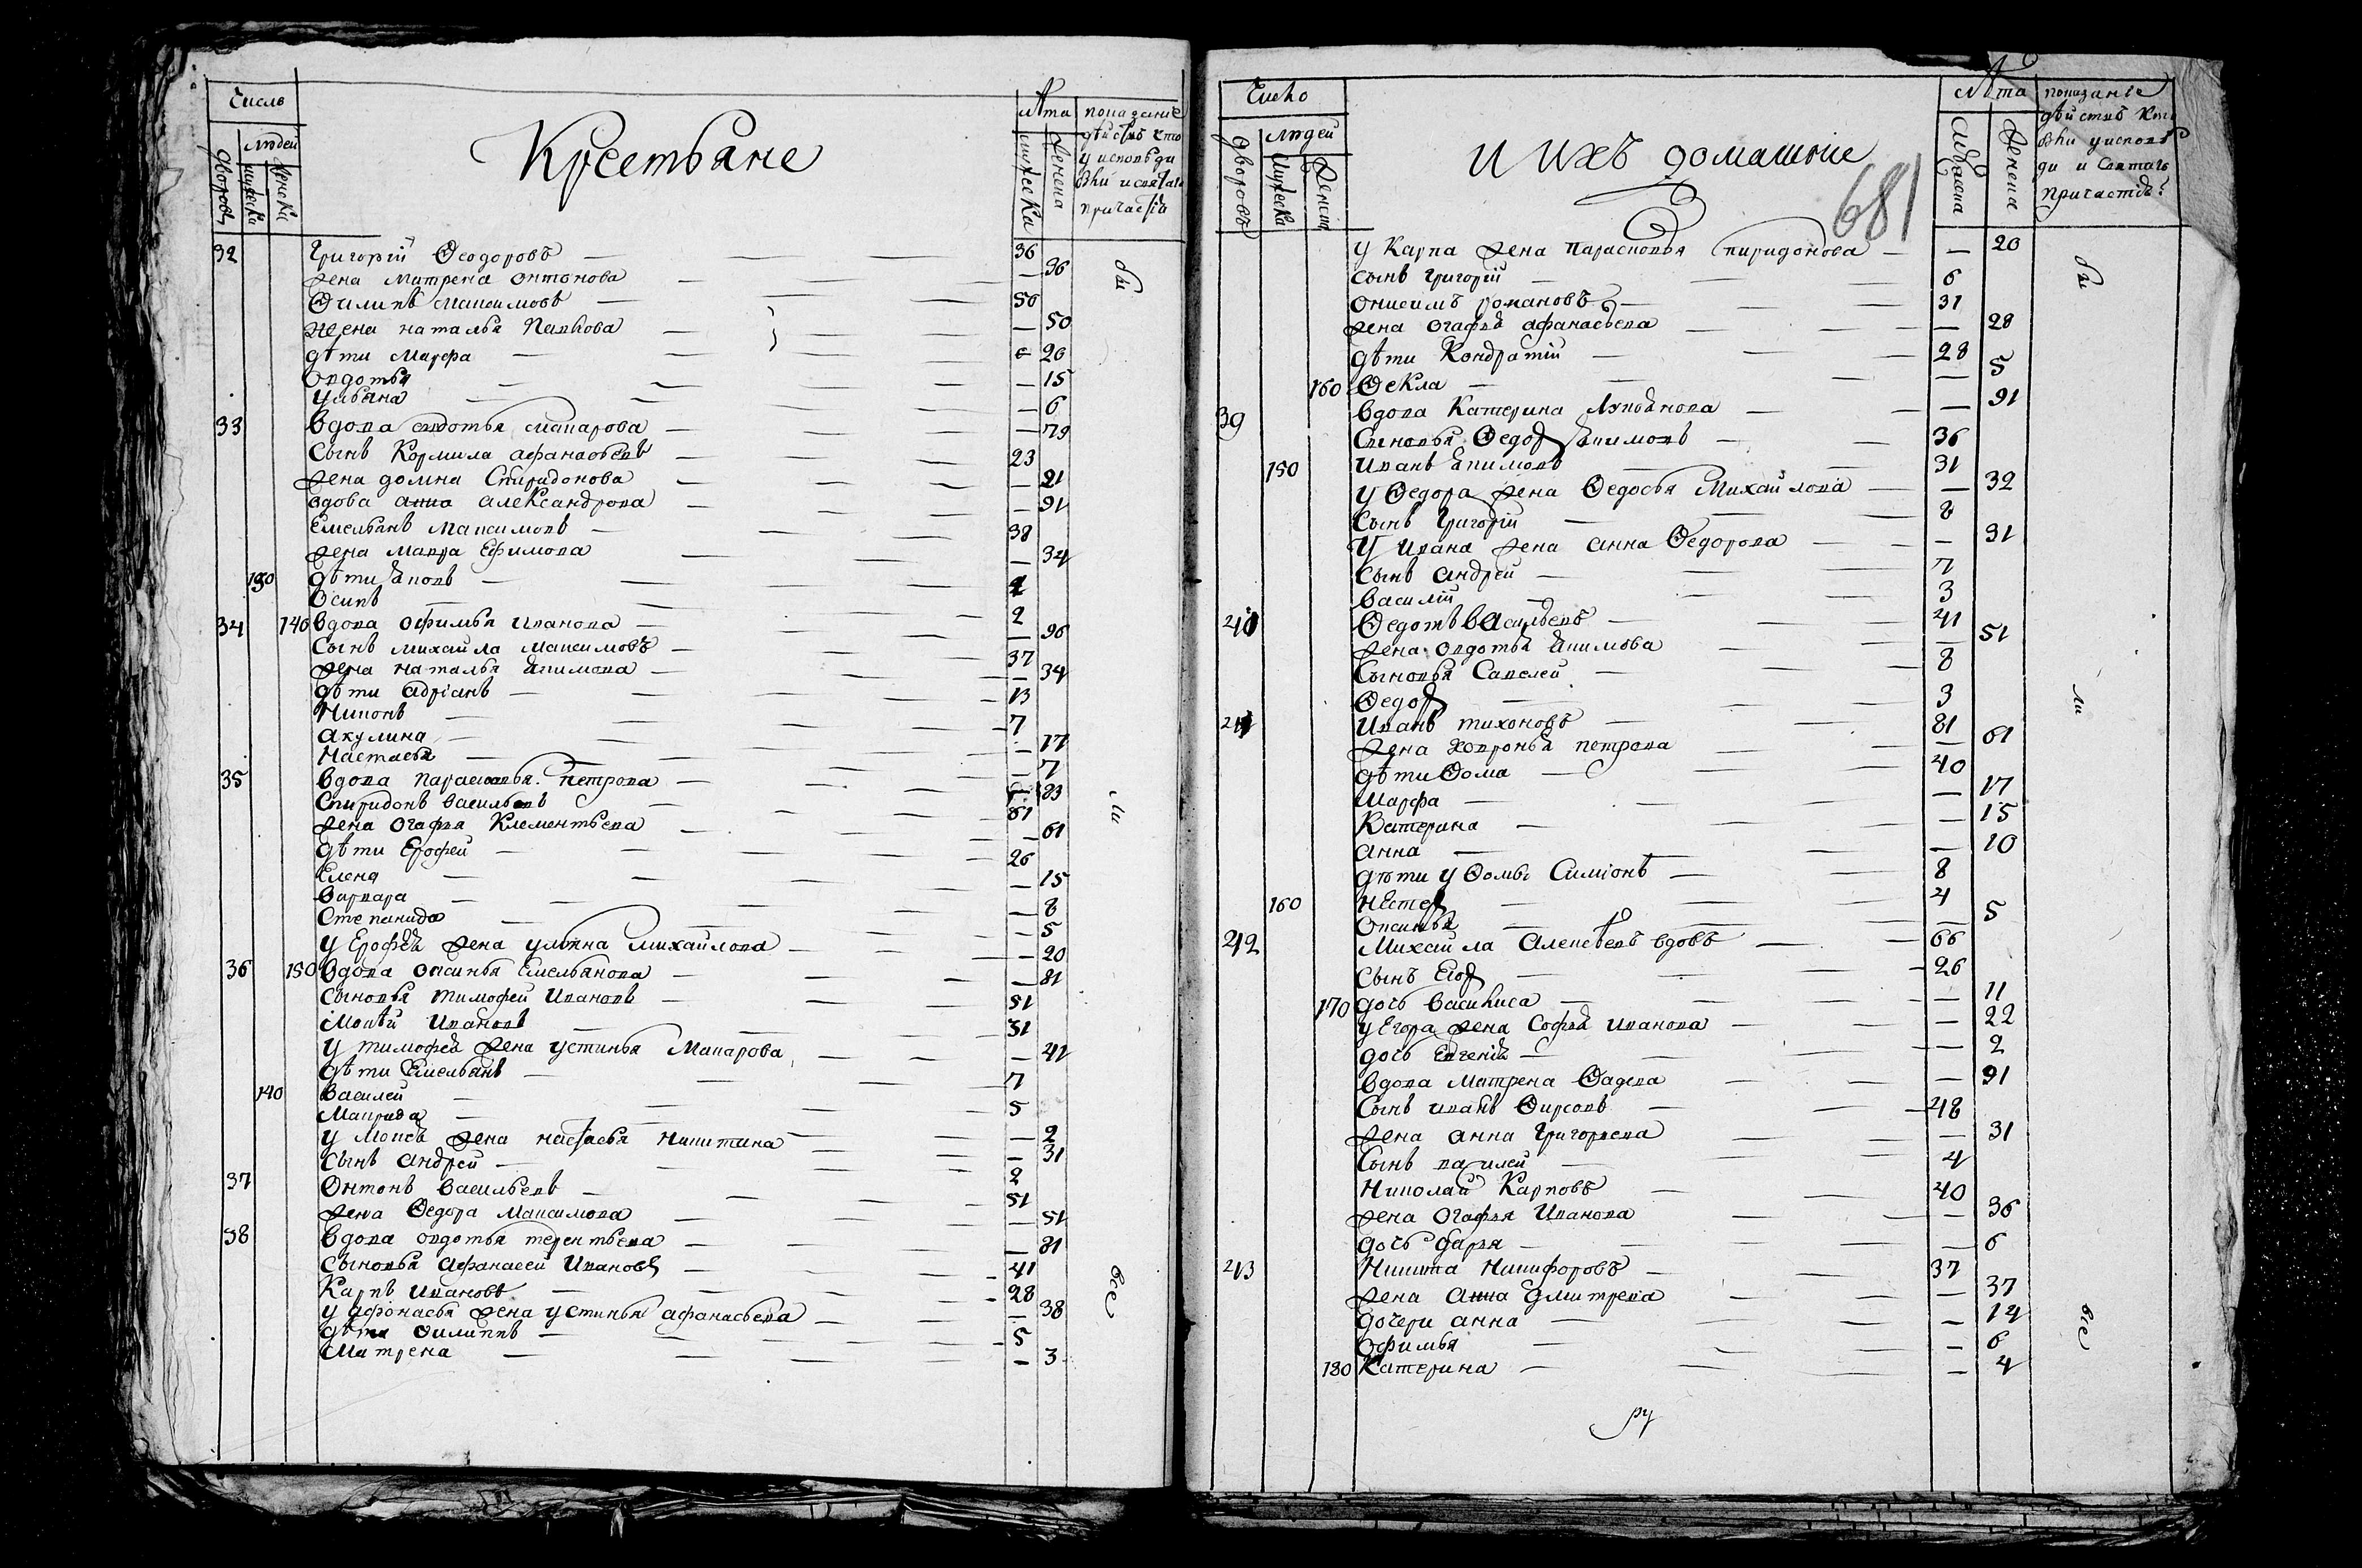 Число
Людей
дворовъ
мужеска
женска
Крестьяне
лѣта
мужеска
женска
показание
дѣйствъ кто
у исповѣди
были и святаго
причастїя
32 Григорїй Ѳеодоровъ — 36
жена Матрена онтонова — 36
Ѳилипъ Максимовъ — 50
жена наталья Павлова — 50
дѣти Марфа — 20
овдотья — 15
ульяна — 6
33 вдова овдотья макарова — 79
Сынъ Кормила афанасьевъ 23
жена домна Спиридонова — 21
вдова анна александрова — 91
Емельянъ Максимовъ — 38
жена мавра Ефимова — 34
130 дѣти яковъ — 4
Осипъ — 2
34 140 вдова офимья иванова — 96
Сынъ михайла максимовъ — 37
жена наталья якимова — 34
дѣти адрїанъ — 13
Никонъ — 7
акулина — 17
Настасья — 7
35 вдова парасковья петрова — 83
Спиридонъ васильевъ 61
жена огафья Клементьева — 61
дѣти Ерофей — 26
Елена — 15
варвара — 8
Степанида — 5
у Ерофея жена ульяна михайлова — 20
36 150 вдова оксинья Емельянова — 81
сыновья тимофей Ивановъ — 51
Моисѣй Ивановъ — 31
у тимофея жена устинья Макарова — 41
дѣти Емельянъ — 7
140 василей — 5
Маврида — 2
у Моисея жена настасья никитина — 31
Сынъ андрей — 2
37 Онтонъ васильевъ — 51
жена Ѳедора Максимова — 51
38 вдова овдотья терентьева — 81
сыновья афанасей Ивановъ — 41
Карпъ Ивановъ — 28
у афонасья жена устинья афанасьева — 38
дѣти Ѳилиппъ — 5
Матрена — 3
бы
ли
все
Число
Людей
дворовъ
мужеска
женска
и ихъ домашнїе
681
лѣта
женска
показанїе
дѣйствъ кто
были у исповѣ
ди и Святаго
причастїя
у Карпа жена парасковья спиридонова — 20
сынъ григорїй — 6
онисимъ романовъ — 31
жена огафья афанасьева — 28
дѣти Кондратїй — 28
160 Ѳекла — 5
39 вдова Катерина Лукоянова — 91
Сыновья Ѳедоръ якимовъ — 36
150 Иванъ якимовъ — 31
у Ѳедора жена Ѳедосья Михайлова — 32
Сынъ Григорїй — 8
у ивана жена анна Ѳедорова — 31
Сынъ андрей — 7
василїй — 3
40 Ѳедотъ васильевъ — 41
жена овдотья якимова — 51
Сыновья Савелей — 8
Ѳедоръ — 3
41 Иванъ тихоновъ — 81
жена ховронья петрова — 61
дѣти Ѳома — 40
Марфа — 17
Катерина — 15
анна — 10
дѣти у Ѳомы Симїонъ — 8
160 Нестеръ — 4
Оксинья — 5
42 Михайла алексѣевъ вдовъ — 66
Сынъ Егоръ — 26
170 дочь василиса — 11
у Егора жена Софья иванова — 22
дочь Евгенїя — 2
вдова Матрена Ѳадева — 91
Сынъ иванъ Ѳирсовъ — 48
жена анна григорьева — 31
Сынъ василей — 4
Николай Карповъ — 40
жена огафья Иванова — 36
дочь дарья — 6
43 Никита Никифоровъ — 37
жена анна дмитрева — 37
дочери анна — 14
офимья — 6
180 Катерина — 4
бы
ли
все
ру